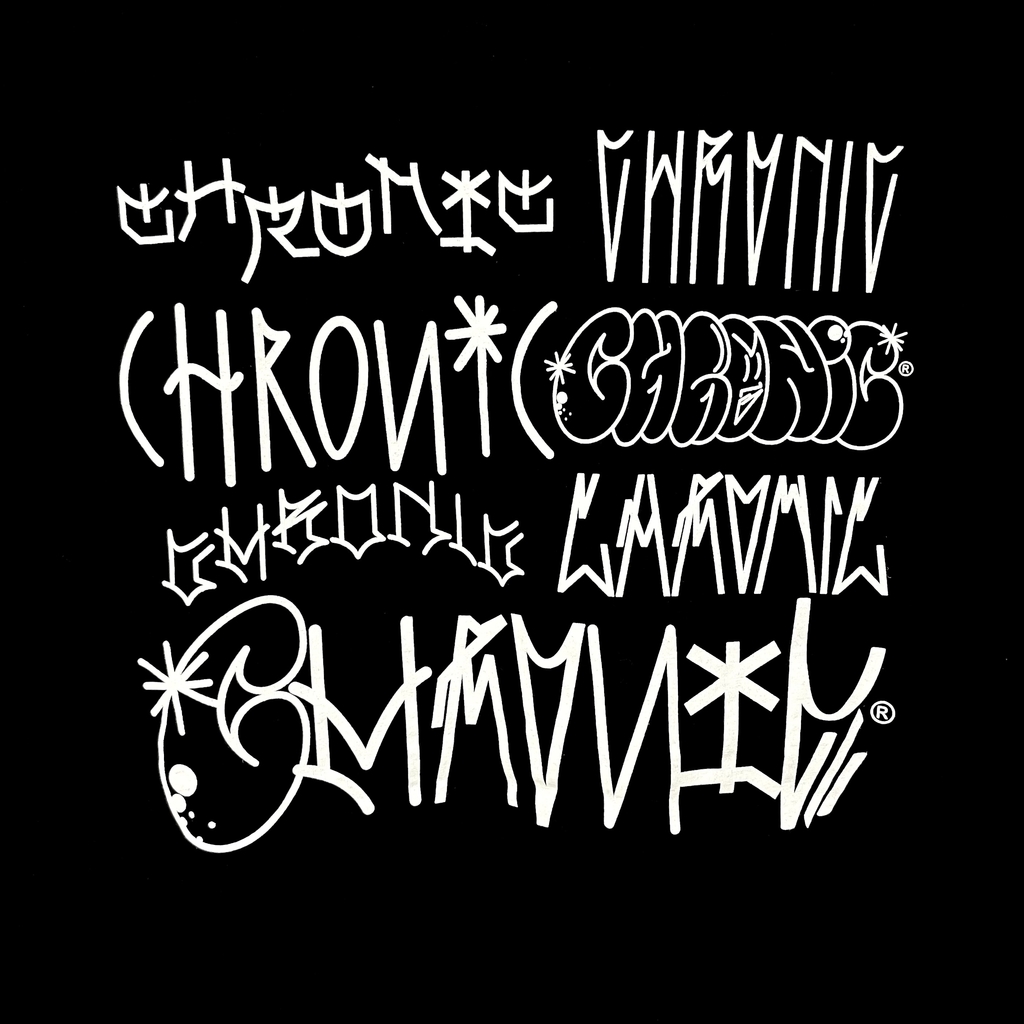 CHRONIC CHRONIC
CHRONIC CHRONIC ®
CHRONIC CHRONIC
CHRONIC ®